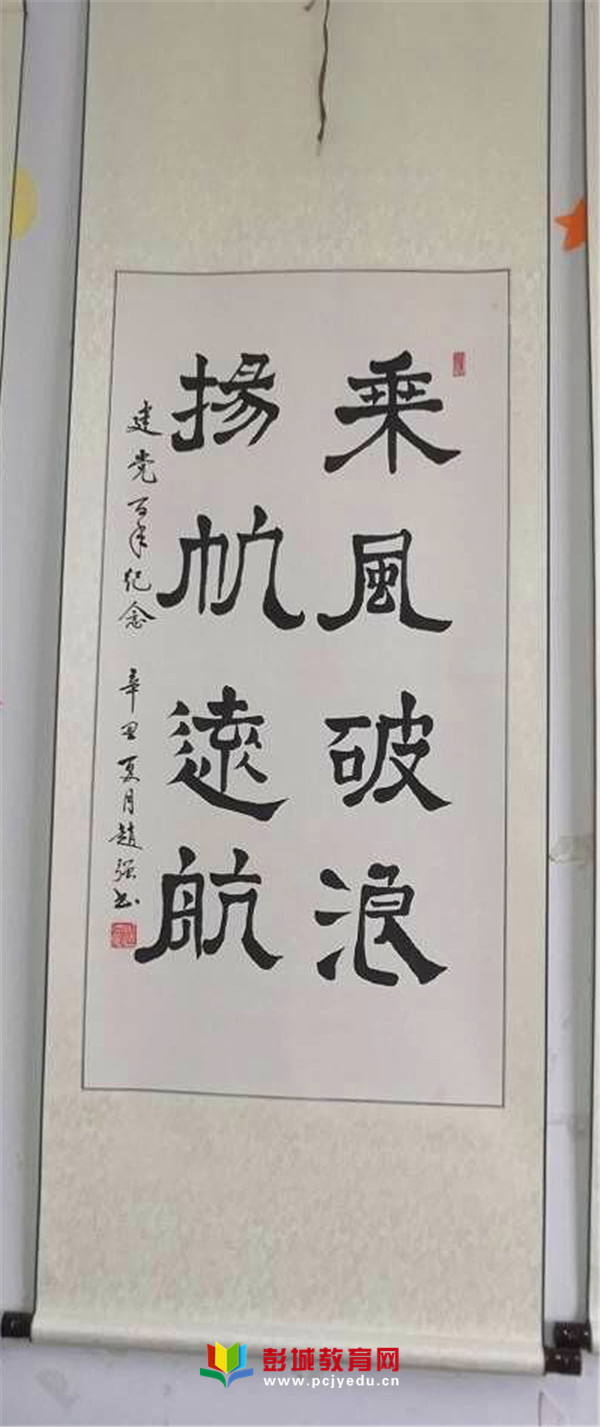 乘風破浪
揚帆遠航
建党百年纪念 辛丑夏月趙强书
彭城教育网
www.pcjyedu.cn